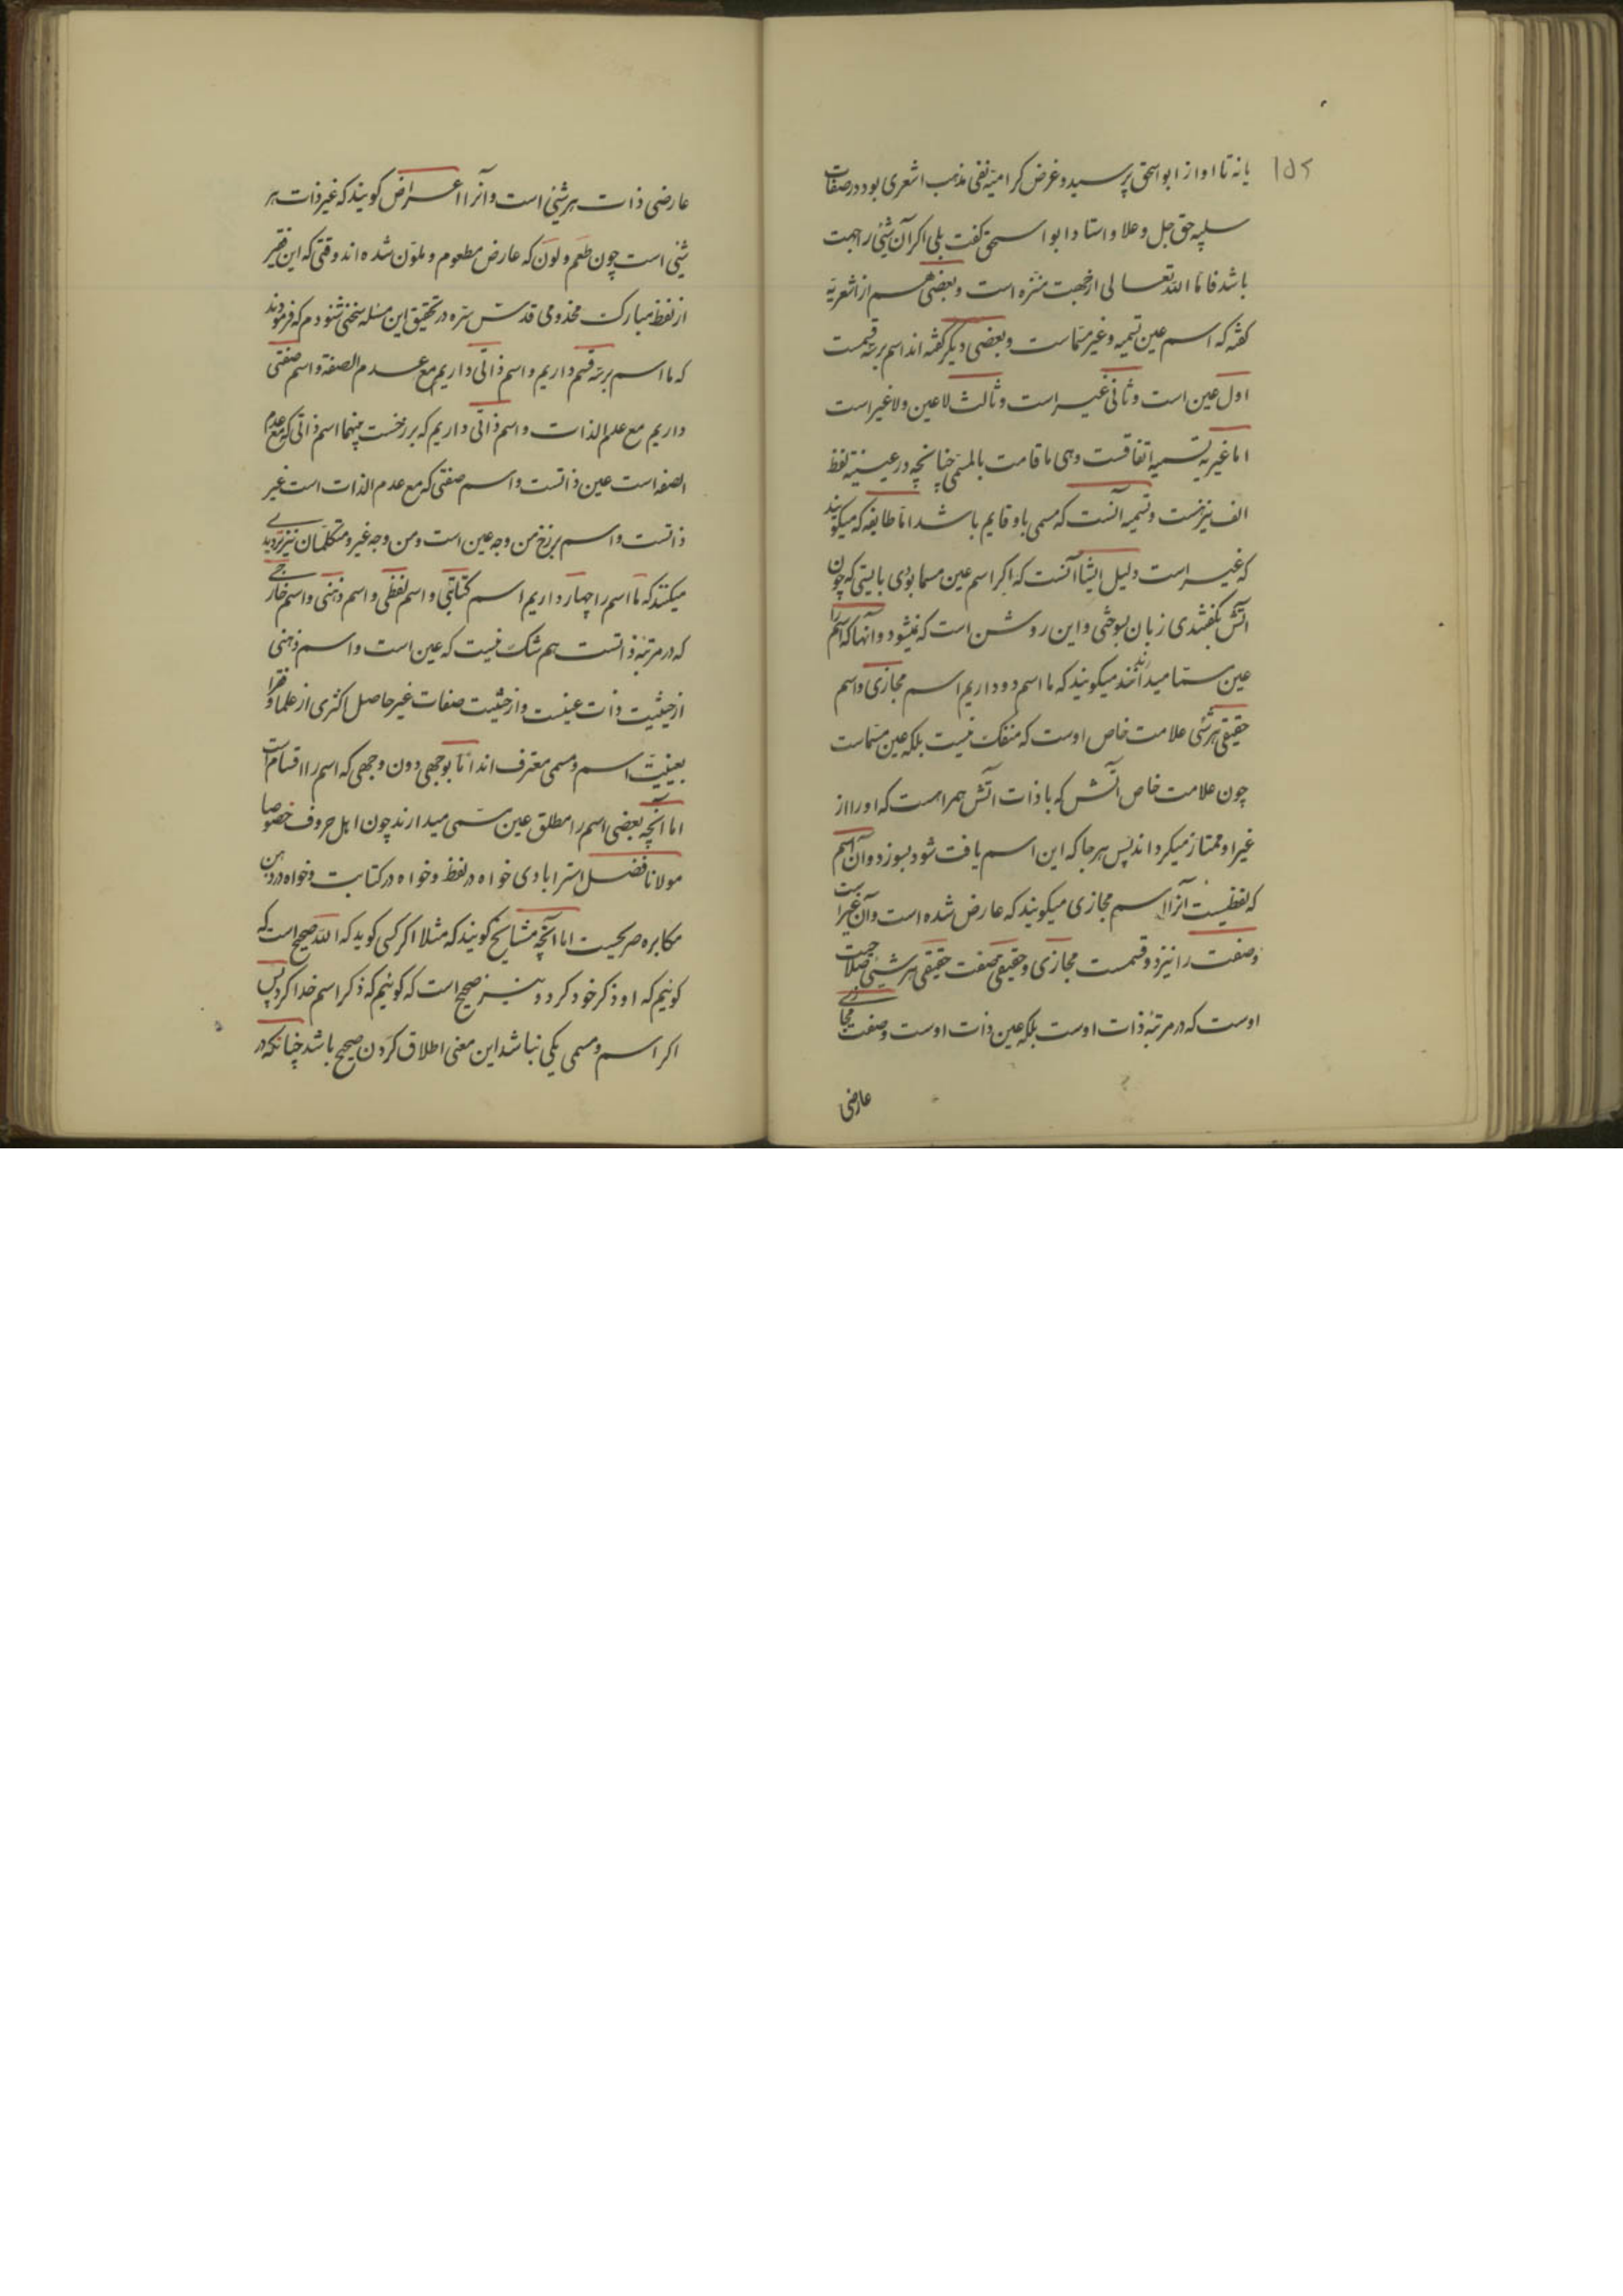 ۱۵۲
یا نه تا او از ابواسحق پرسید و غرض کرامیه نفی مذهب اشعری بود در صفات
سلبیه حق جل و علا و استاد ابو اسحق کفت بلی اکر آن شئی را جهت
باشد فاما الله تعالی از جهت منزه است و بعضی هم از اشعریه
کفته که اسم عین تسمیه و غیر مسماست و بعضی دیکر کفته اند اسم بر سه قسمت
اول عین است و ثانی غیر است و ثالث لا عین و لا غیر است
اما غیریه تسمیه اتفاقست وهی ما قامت بالمسمی چنانچه در عینیته لفظ
الف نیز نیست و تسمیه آنست که مسمی باو قایم باشد اما طایفه که میکویند
که غیر است دلیل ایشا آنست که اکر اسم عین مسما بودی بایستی که چون
آتش بکفتندی زبان بسوختی و این روشن است که نمیشود و آنها که اسم را
عین مسما میدانند میکویند که ما اسم دو داریم اسم مجازی و اسم
حقیقی هر شئی علامت خاص اوست که منفک نیست بلکه عین مسماست
چون علامت خاص آتش که با ذات آتش همراست که او را از
غیر او ممتاز میکرداند پس هر جا که این اسم یافت شود بسوزد و آن اسم
که لفظیست آنرا اسم مجازی میکویند که عارض شده است و آن غیر است
و صفت را نیز دو قسمت مجازی و حقیقی صفت حقیقی هر شئی صلاحیت
اوست که در مرتبه ذات اوست بلکه عین ذات اوست و صفت مجازی
عارضی
عارضی ذات هر شئی است و آنرا اعراض کویند که غیر ذات هر
شئی است چون طعم و لون که عارض مطعوم و ملون شده اند وقتی که این فقیر
از لفظ مبارک مخدومی قدس سره در تحقیق این مسئله سخنی شنودم که فرمودند
که ما اسم بر سه قسم داریم و اسم ذاتی داریم مع عدم الصفة و اسم صفتی
داریم مع عدم الذات و اسم ذاتی داریم که برزخست بینهما اسم ذاتی که مع عدم
الصفه است عین ذاتست و اسم صفتی که مع عدم الذات است غیر
ذاتست و اسم برزخ من وجه عین است و من وجه غیر و متکلمان نیز تردیدی
میکنند که ما اسم را چهار داریم اسم کتابتی و اسم لفظی و اسم ذهنی و اسم خارجی
که در مرتبه ذاتست هم شک نیست که عین است و اسم ذهنی
از حیثیت ذات عینست و از حیثیت صفات غیر حاصل اکثری از علما و فقرا
بعینیت اسم و مسمی معترف اند اما بوجهی دون وجهی که اسم را اقسام است
اما آنچه بعضی اسم را مطلق عین مسمی میدارند چون اهل حروف خصوصا
مولانا فضل استرابادی خواه در لفظ و خواه در کتابت و خواه در ذهن
مکابره صریحست اما آنچه مشایخ کویند که مثلا اکر کسی کوید که الله صحیح است که
کوئیم که او ذکر خود کرد و نیز صحیح است که کوئیم که ذکر اسم خدا کرد پس
اکر اسم و مسمی یکی نباشد این معنی اطلاق کردن صحیح باشد چنانکه در